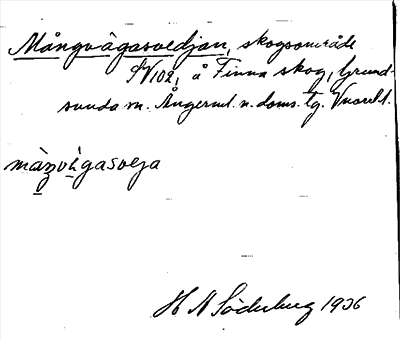 Mångvågasvedjan, skogsområde
SV102, å Finna skog, Grund-
sunda sn. Ångerml. n. doms. tg. Vnorrl l.
mànvågasveja
H N Söderberg 1936